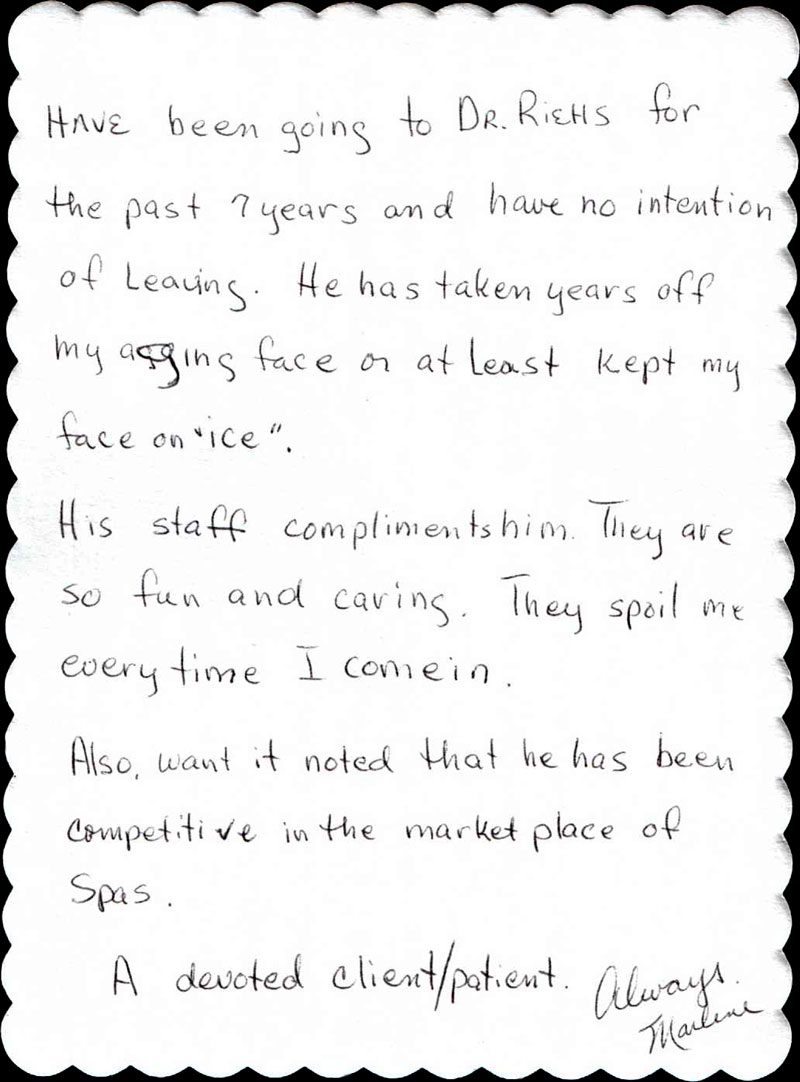 HAVE been going to DR. RIEHS for
the past 7 years and have no intention
of Leaving. He has taken years off
my agging face or at least kept my
face on "ice".
His staff compliments him. They are
so fun and caring. They spoil me
every time I come in.
Also, want it noted that he has been
competitive in the market place of
Spas.
A devoted client/patient. Always.
Marlene